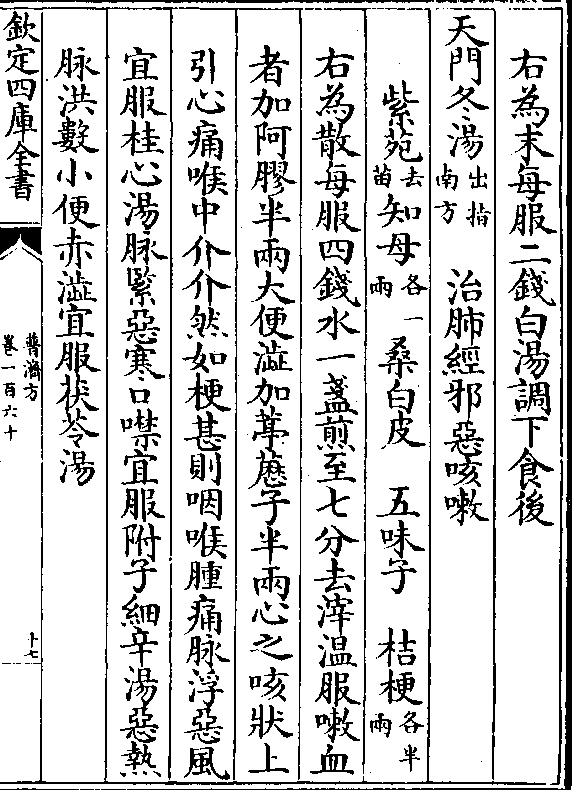 右為末每服二錢白湯調下食後
天門冬湯出指南方　治肺經邪惡咳嗽
紫苑去苗知母各一兩　桑白皮　五味子　桔梗各半兩
右為散每服四錢水一盞煎至七分去滓溫服嗽血
者加阿膠半兩大便澁加葶藶子半兩心之咳狀上
引心痛喉中介介然如梗甚則咽喉腫痛脉浮惡風
宜服桂心湯脉緊惡寒口噤宜服附子細辛湯惡熱
脉洪數小便赤澁宜服茯苓湯
欽定四庫全書
普濟方
卷一百六十
十七